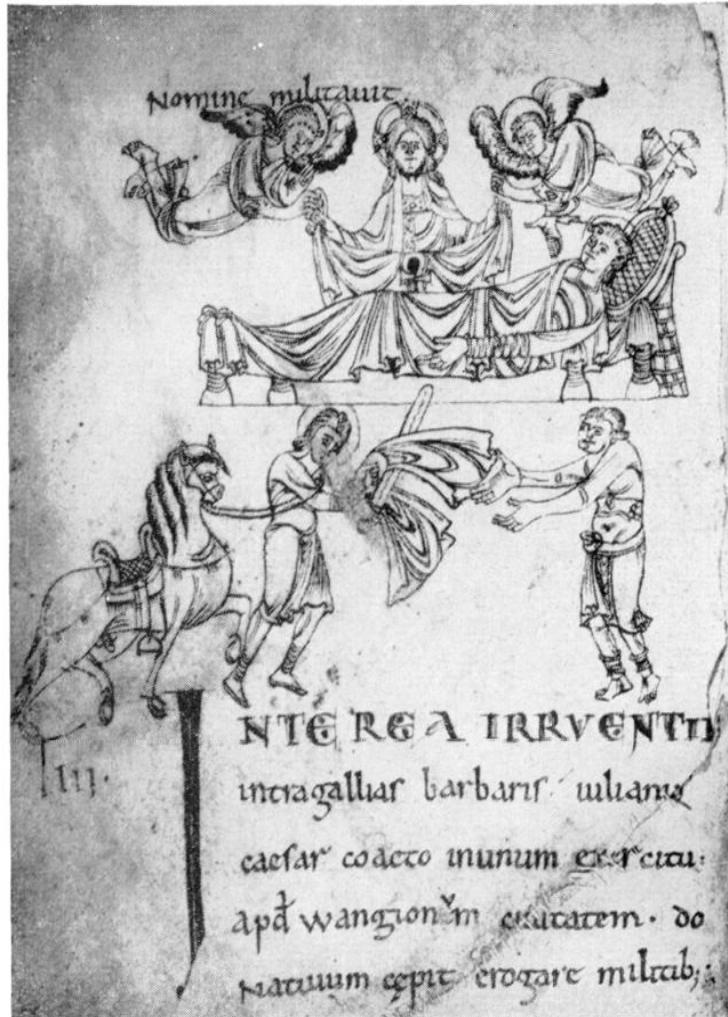 Nomine militauit.
INTEREA IRRVENTII
III.
intragallias barbaris iulianus
caesar coacto inunum exercitu.
apd wangionum ciuitatem. do
Natiuum cępit erogare militib;